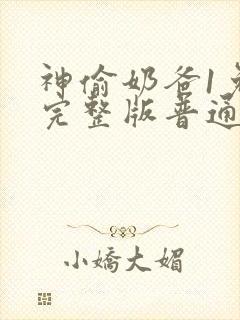 神偷奶爸1免
完整版普通
小嬌大媚